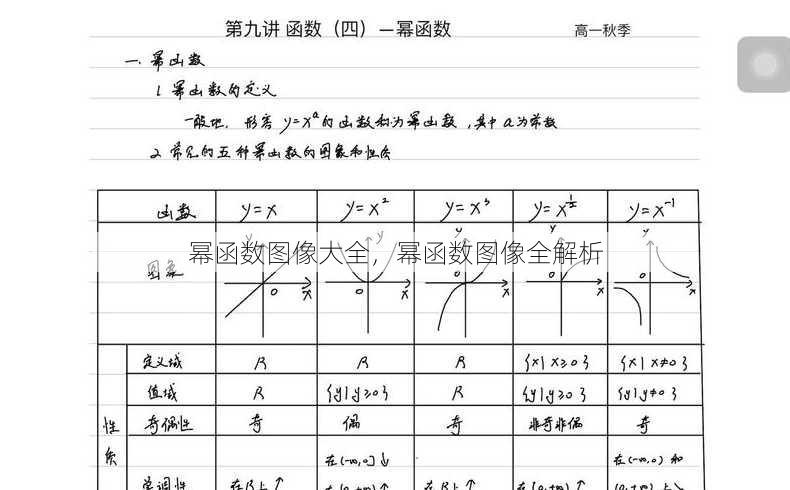 第九讲 函数（四）—幂函数 高一秋季
一. 幂函数
1. 幂函数的定义
一般地，形容 y=xᵃ的函数称为幂函数，其中 a为常数
2. 常见的五种幂函数的图象和性质
函数 y=x y=x² y=x³ y=x^½ y=x⁻¹
幂函数图像大全，幂函数图像全解析
图象 y y y y y
o x o x o x o x o x
定义域 R R R {x|x≥0} {x|x≠0}
值域 R {y|y≥0} R {y|y≥0} {y|y≠0}
奇偶性 奇 偶 奇 非奇非偶 奇
性质
在(-∞,0]↓ 在(-∞,0) 和
单调性 在R上↑ 在[0,+∞)↑ 在R上↑ 在[0,+∞)↑